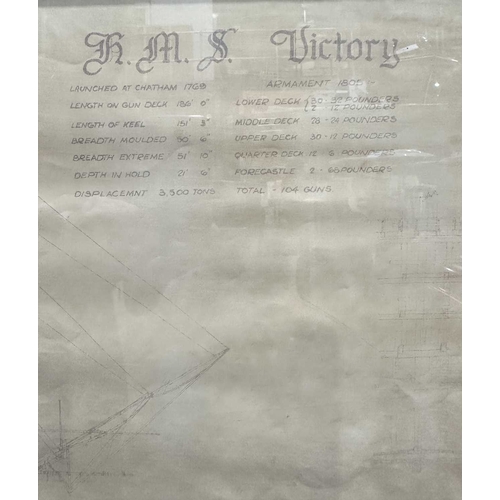 H.M.S. Victory
LAUNCHED AT CHATHAM 1765
LENGTH ON GUN DECK 186' 0"
LENGTH OF KEEL 151' 3"
BREADTH MOULDED 50' 6"
BREADTH EXTREME 51' 10"
DEPTH IN HOLD 21' 6"
DISPLACEMNT 3,500 TONS
ARMAMENT 1805
LOWER DECK 30 32 POUNDERS
2 12 POUNDERS
MIDDLE DECK 28 - 24 POUNDERS
UPPER DECK 30 - 12 POUNDERS
QUARTER DECK 12 6 POUNDERS
FORECASTLE 2 - 68 POUNDERS
TOTAL - 104 GUNS